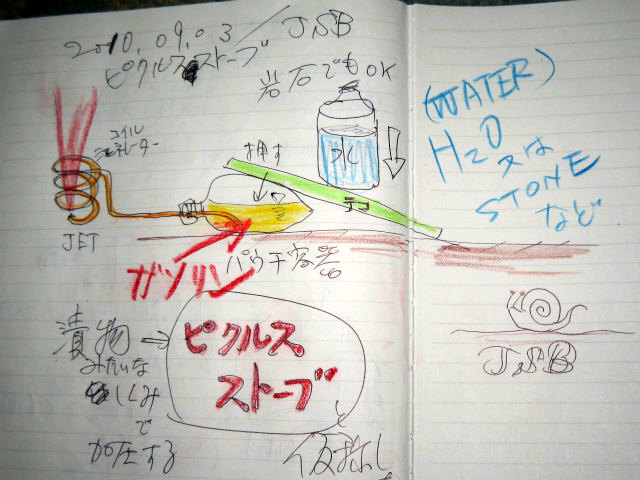 2010.09.03/JSB
ピクルスストーブ
岩石でもOK
(WATER)
H2O
又は
STONE
など
コイル
ジェネレーター
押す
水
JET
ガソリン
パウチ容器
漬物
みたいな
しくみ
で
加圧する
ピクルス
ストーブ
と
仮称し
JSB